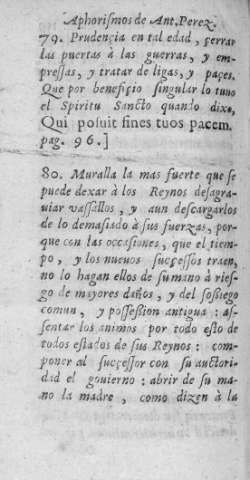 Aphorismos de Ant. Perez.
79. Prudençia en tal edad, çerrar
las puertas à las guerras, y em-
pressas, y tratar de ligas, y paçes.
Que por benefiçio singular lo tuuo
el Spiritu Sancto quando dixo,
Qui posuit fines tuos pacem.
pag. 96.]
80. Muralla la mas fuerte que se
puede dexar à los Reynos desagra-
uiar vassallos, y aun descargarlos
de lo demasiado à sus fuerzas, por-
que con las occasiones, que el tiem-
po, y los nueuos sucçessos traen,
no lo hagan ellos de su mano à ries-
go de mayores daños, y del sossiego
comun, y possession antigua: as-
sentar los animos por todo esto de
todos estados de sus Reynos: com-
poner al sucçessor con su auctori-
dad el gouierno: abrir de su ma-
no la madre, como dizen à la